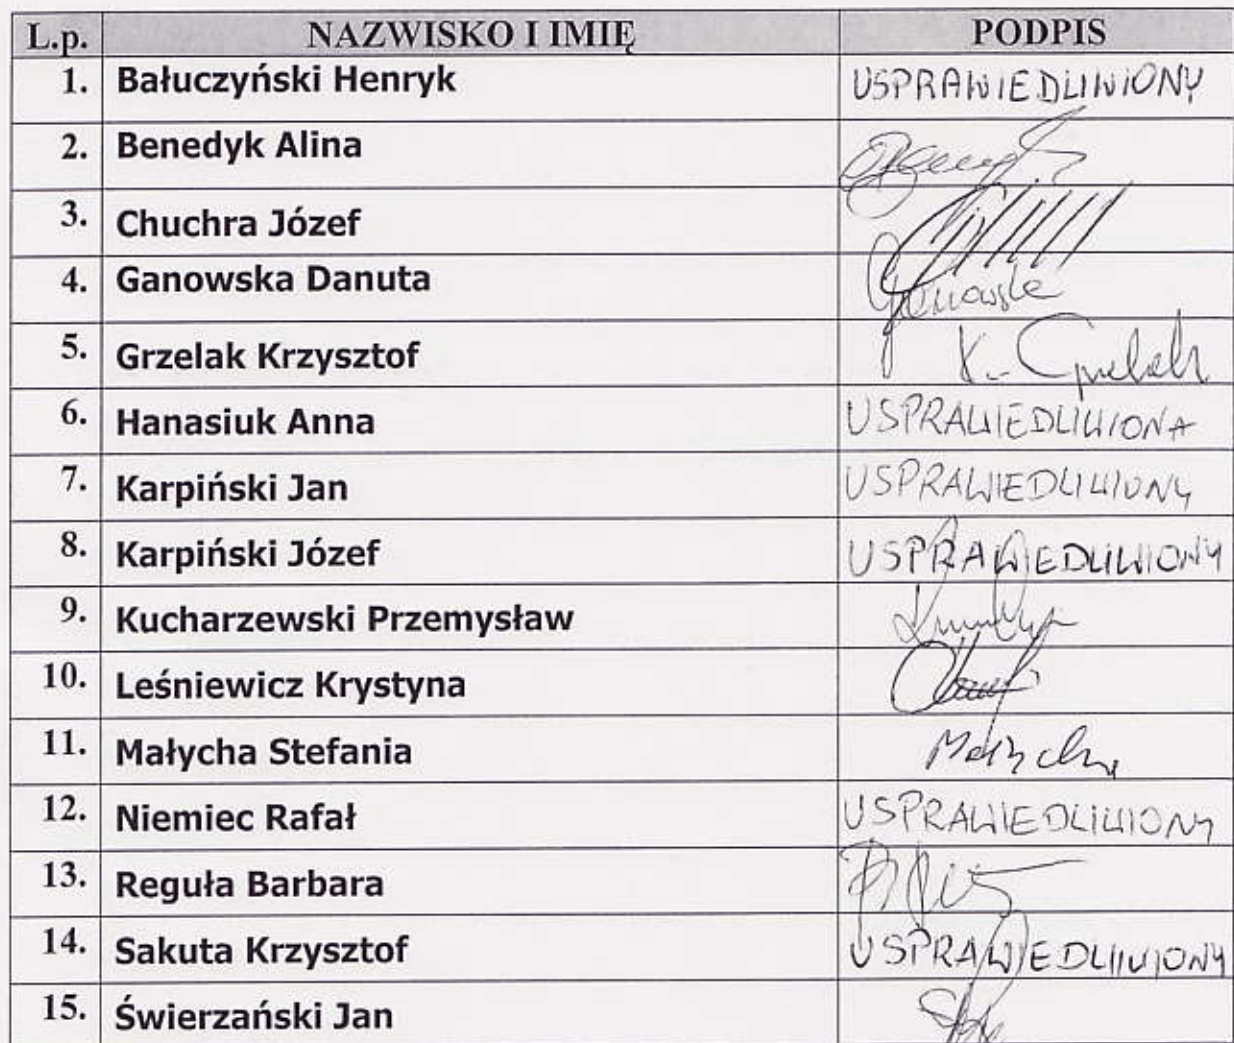 L.p. NAZWISKO I IMIĘ PODPIS
1. Bałuczyński Henryk USPRAWIEDLIWIONY
2. Benedyk Alina
3. Chuchra Józef
4. Ganowska Danuta Ganowska
5. Grzelak Krzysztof K. Grzelak
6. Hanasiuk Anna USPRAWIEDLIWIONA
7. Karpiński Jan USPRAWIEDLIWIONY
8. Karpiński Józef USPRAWIEDLIWIONY
9. Kucharzewski Przemysław
10. Leśniewicz Krystyna
11. Małycha Stefania Małycha
12. Niemiec Rafał USPRAWIEDLIWIONY
13. Reguła Barbara
14. Sakuta Krzysztof USPRAWIEDLIWIONY
15. Świerzański Jan